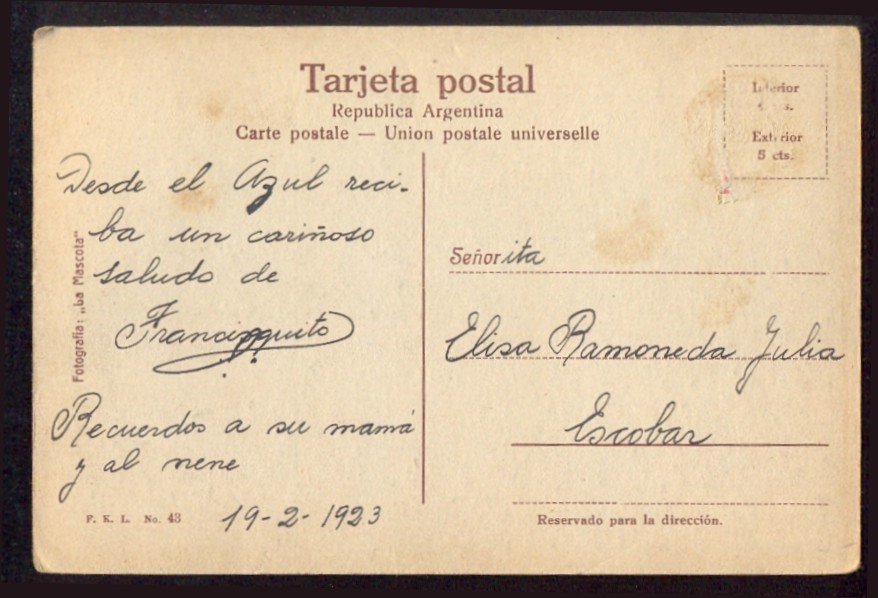 Tarjeta postal
Republica Argentina
Carte postale — Union postale universelle
Interior
Exterior
5 cts.
Desde el Azul reci-
ba un cariñoso
saludo de
Francisquito
Recuerdos a su mamá
y al nene
19-2-1923
Fotografia: „La Mascota"
F. K. L. No. 43
Señorita
Elisa Ramoneda Julia
Escobar
Reservado para la dirección.